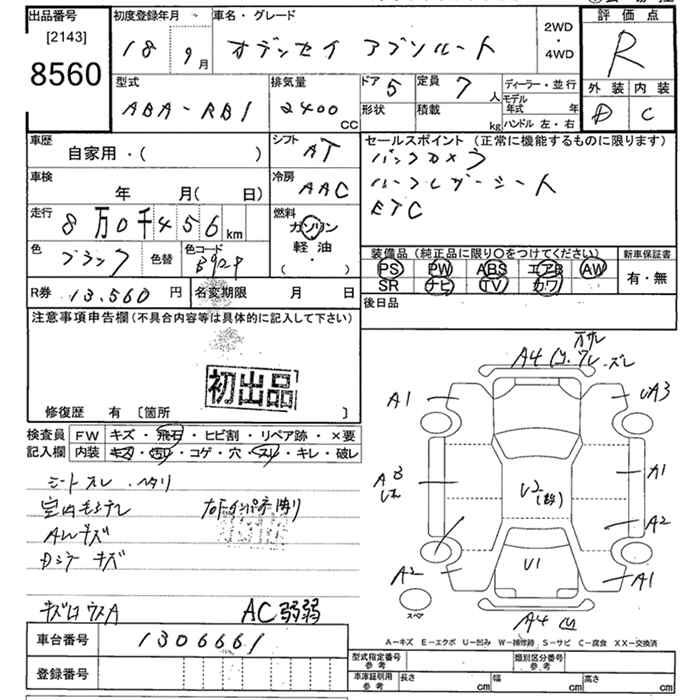 出品番号
[2143]
8560
初度登録年月
18 9月
車名・グレード
オデッセイ アブソルート
2WD
・
4WD
評価点
R
外装 内装
D C
型式
ABA-RB1
排気量
2400
CC
ドア 5
定員 7 人
形状
積載 kg
ディーラー・並行
モデル年式 年
ハンドル 左・右
車歴
自家用・( )
シフト
AT
車検
年 月( 日)
冷房
AAC
走行
8万0千456 km
燃料
ガソリン
軽油・
( )
色
ブラック
色替
色コード
B92P
セールスポイント (正常に機能するものに限ります)
バックカメラ
ハーフレザーシート
ETC
装備品 (純正品に限り〇をつけてください)
PS PW ABS エアB AW
SR ナビ TV カワ
新車保証書
有・無
R券 13,560 円
名変期限 月 日
後日品
注意事項申告欄 (不具合内容等は具体的に記入して下さい)
初出品
修復歴 有 [箇所 ]
検査員記入欄
FW キズ・飛石・ヒビ割・リペア跡・×要
内装 キズ・汚レ・コゲ・穴・スレ・キレ・破レ
シートスレ・ヘタリ
AWキズ
キズ
AC弱弱
A4
A1
A3
A1
A2
A2
U2
U1
A1
A4 凹
スペア
A-キズ E-エクボ U-凹み W-補修跡 S-サビ C-腐食 XX-交換済
車台番号 1306661
登録番号
型式指定番号 参考
類別区分番号 参考
車庫証明用 参考
長さ cm
幅 cm
高さ cm